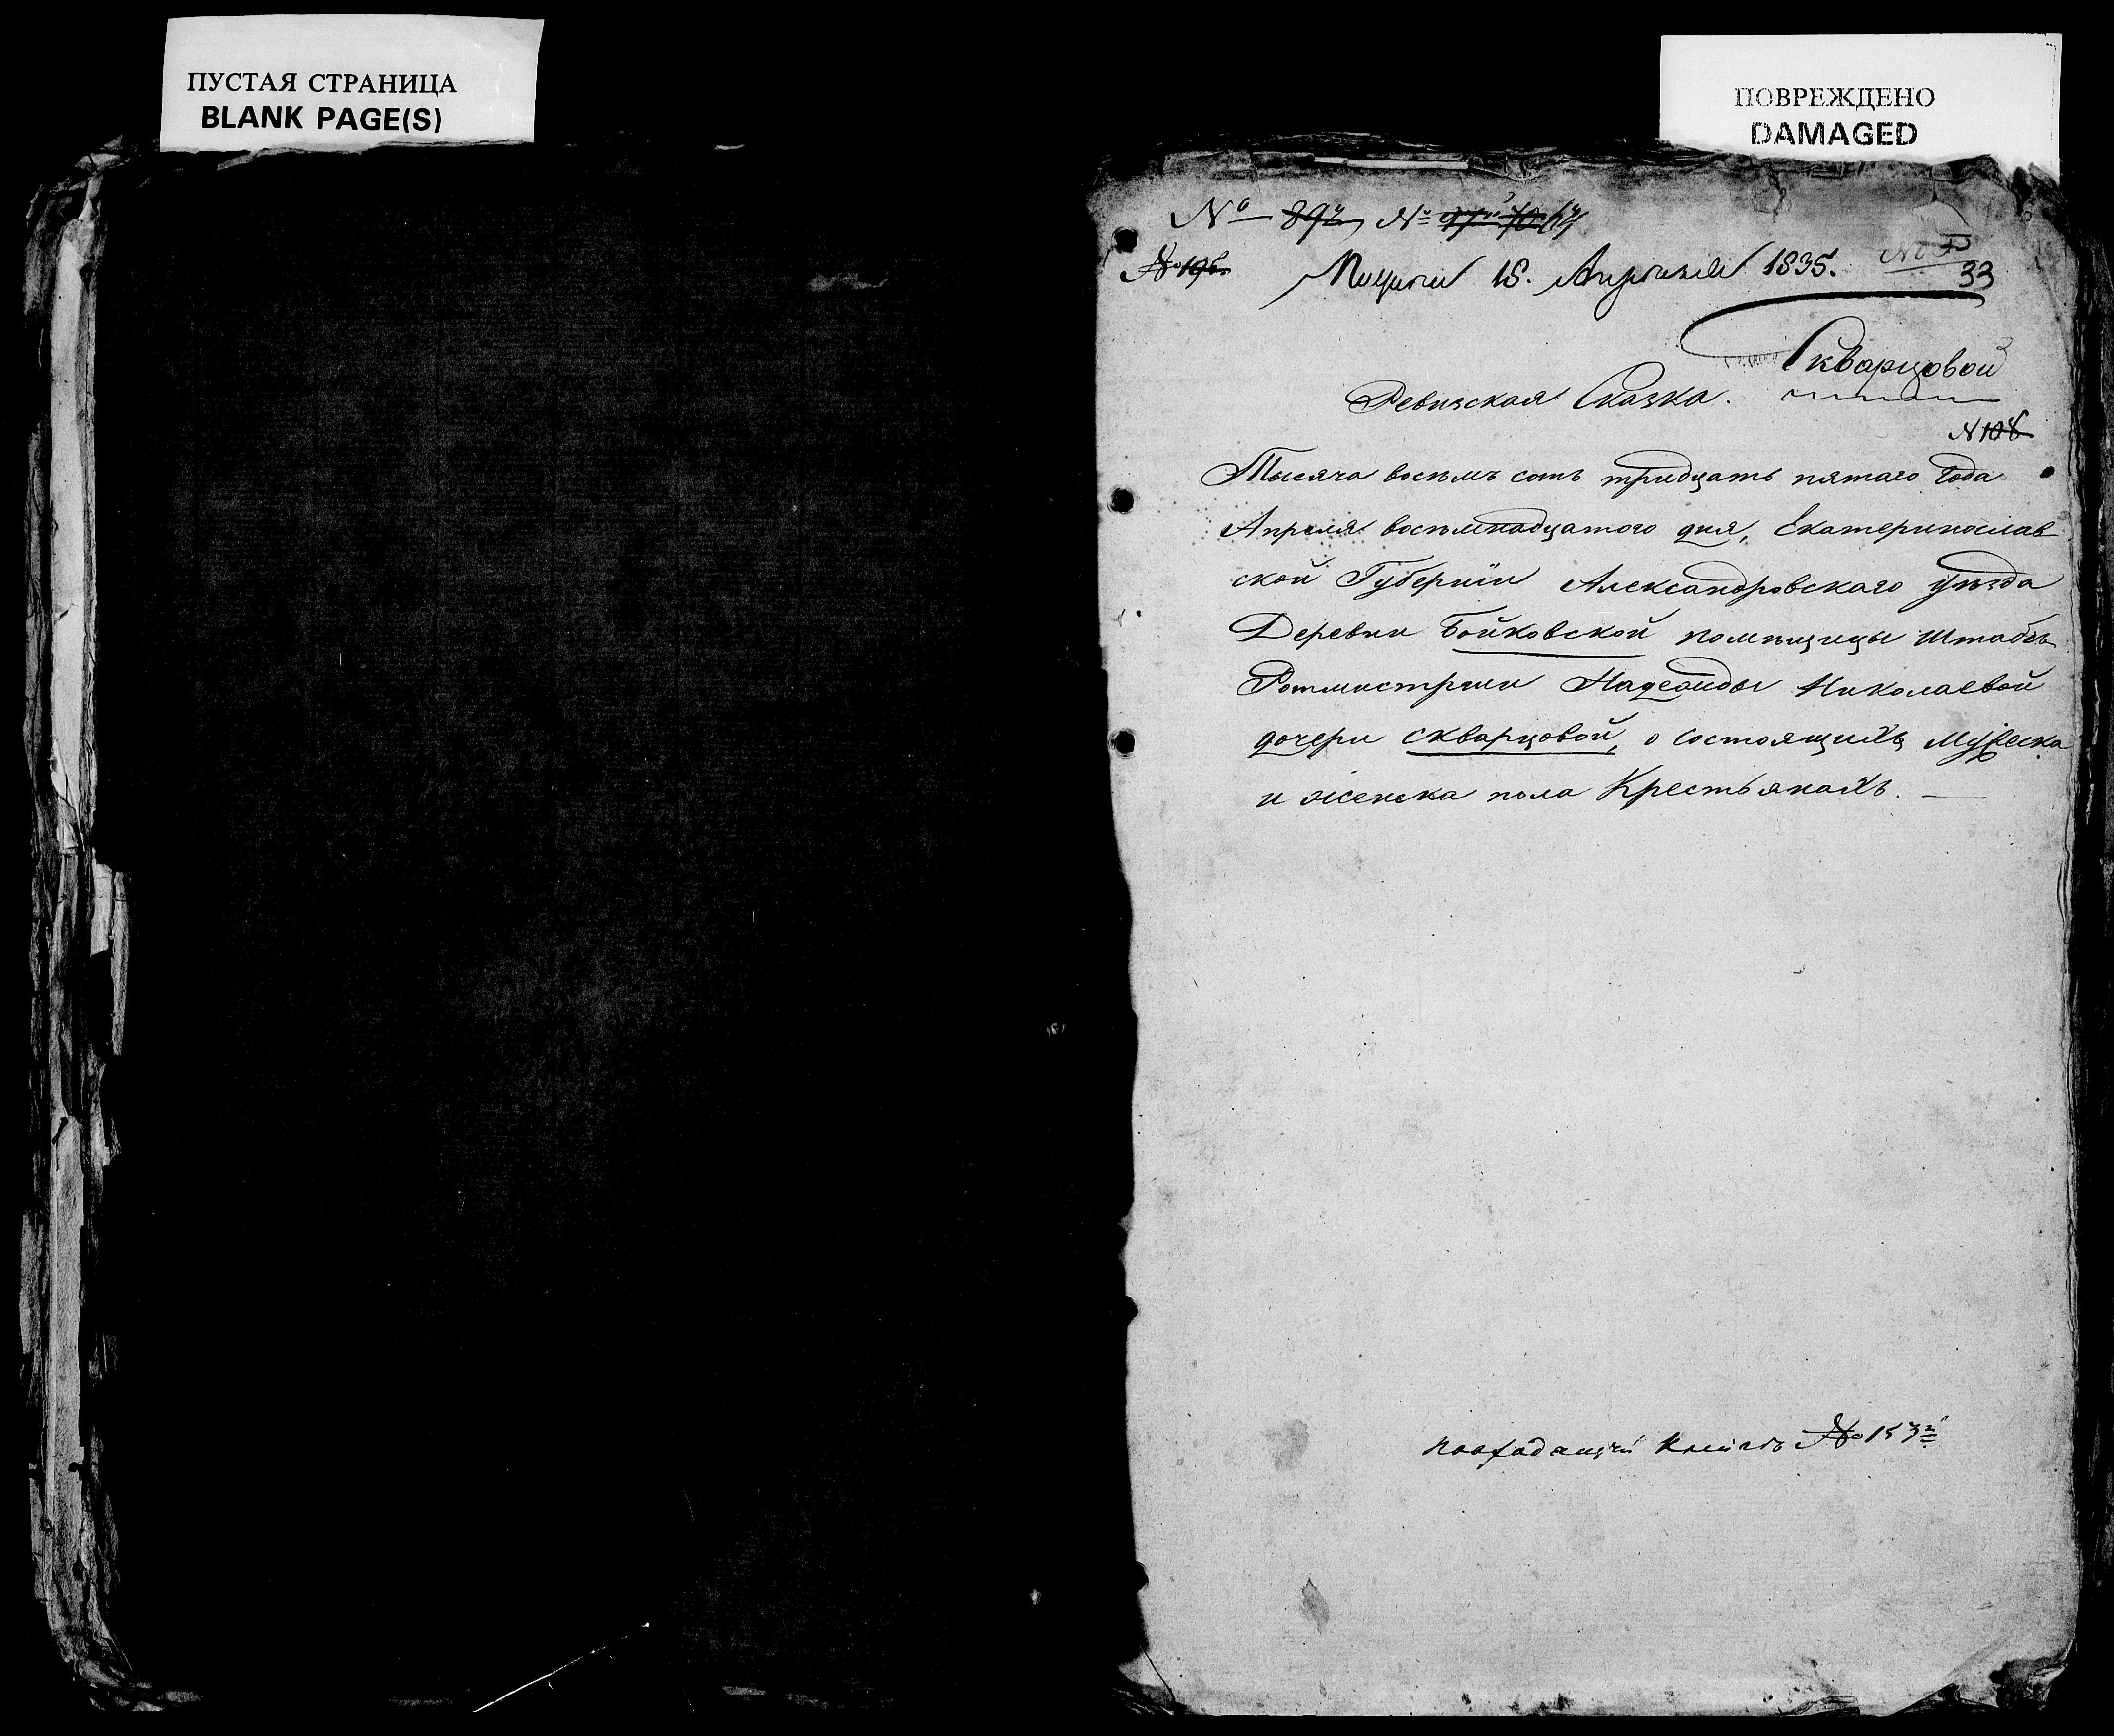 ПУСТАЯ СТРАНИЦА
BLANK PAGE(S)
ПОВРЕЖДЕНО
DAMAGED
№ 897 №
№ 196
18. Апреля 1835.
33
Скварцовой
Ревизская Сказка.
N 108
Тысяча восемь сотъ тридцать пятаго года
Апреля восемнадцатого дня, Екатеринослав
ской Губерніи Александровскаго уѣзда
Деревни Бойковской помѣщицы Штабсъ
Ротмистрши Надежды Николаевой
дочери Скварцовой, о состоящихъ мужеска
и женска пола Крестьянахъ. —
№ 153й